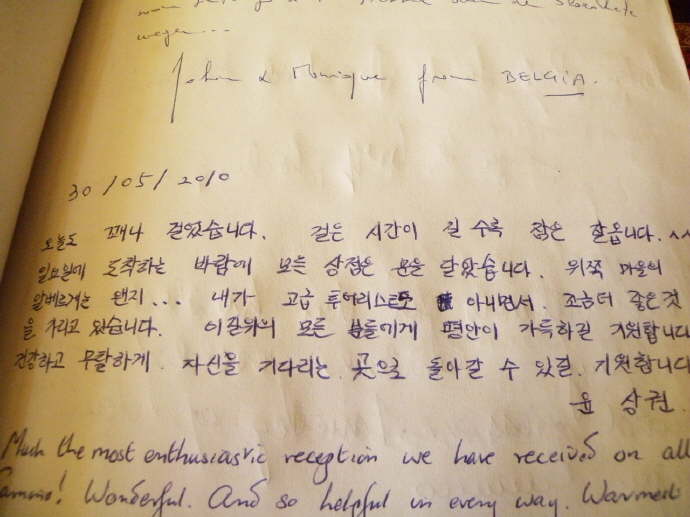 wegen...
John & Monique from BELGIA.
30/05/2010
오늘도 꽤나 걸었습니다. 걷은 시간이 길 수록 잠은 잘옵니다.^^
일요일에 도착하는 바람에 모든 상점은 문을 닫았습니다. 위쪽 마을의
알베르게는 왠지... 내가 고급 투어리스트도 아니면서. 조금더 좋은것
을 가리고 있습니다. 이길위의 모든 분들에게 평안이 가득하길 기원합니다
건강하고 무탈하게. 자신을 기다리는 곳으로 돌아갈 수 있길. 기원합니다
윤 상권.
Much the most enthusiastic reception we have received on all
Camino! Wonderful. And so helpful in every way. Warmest